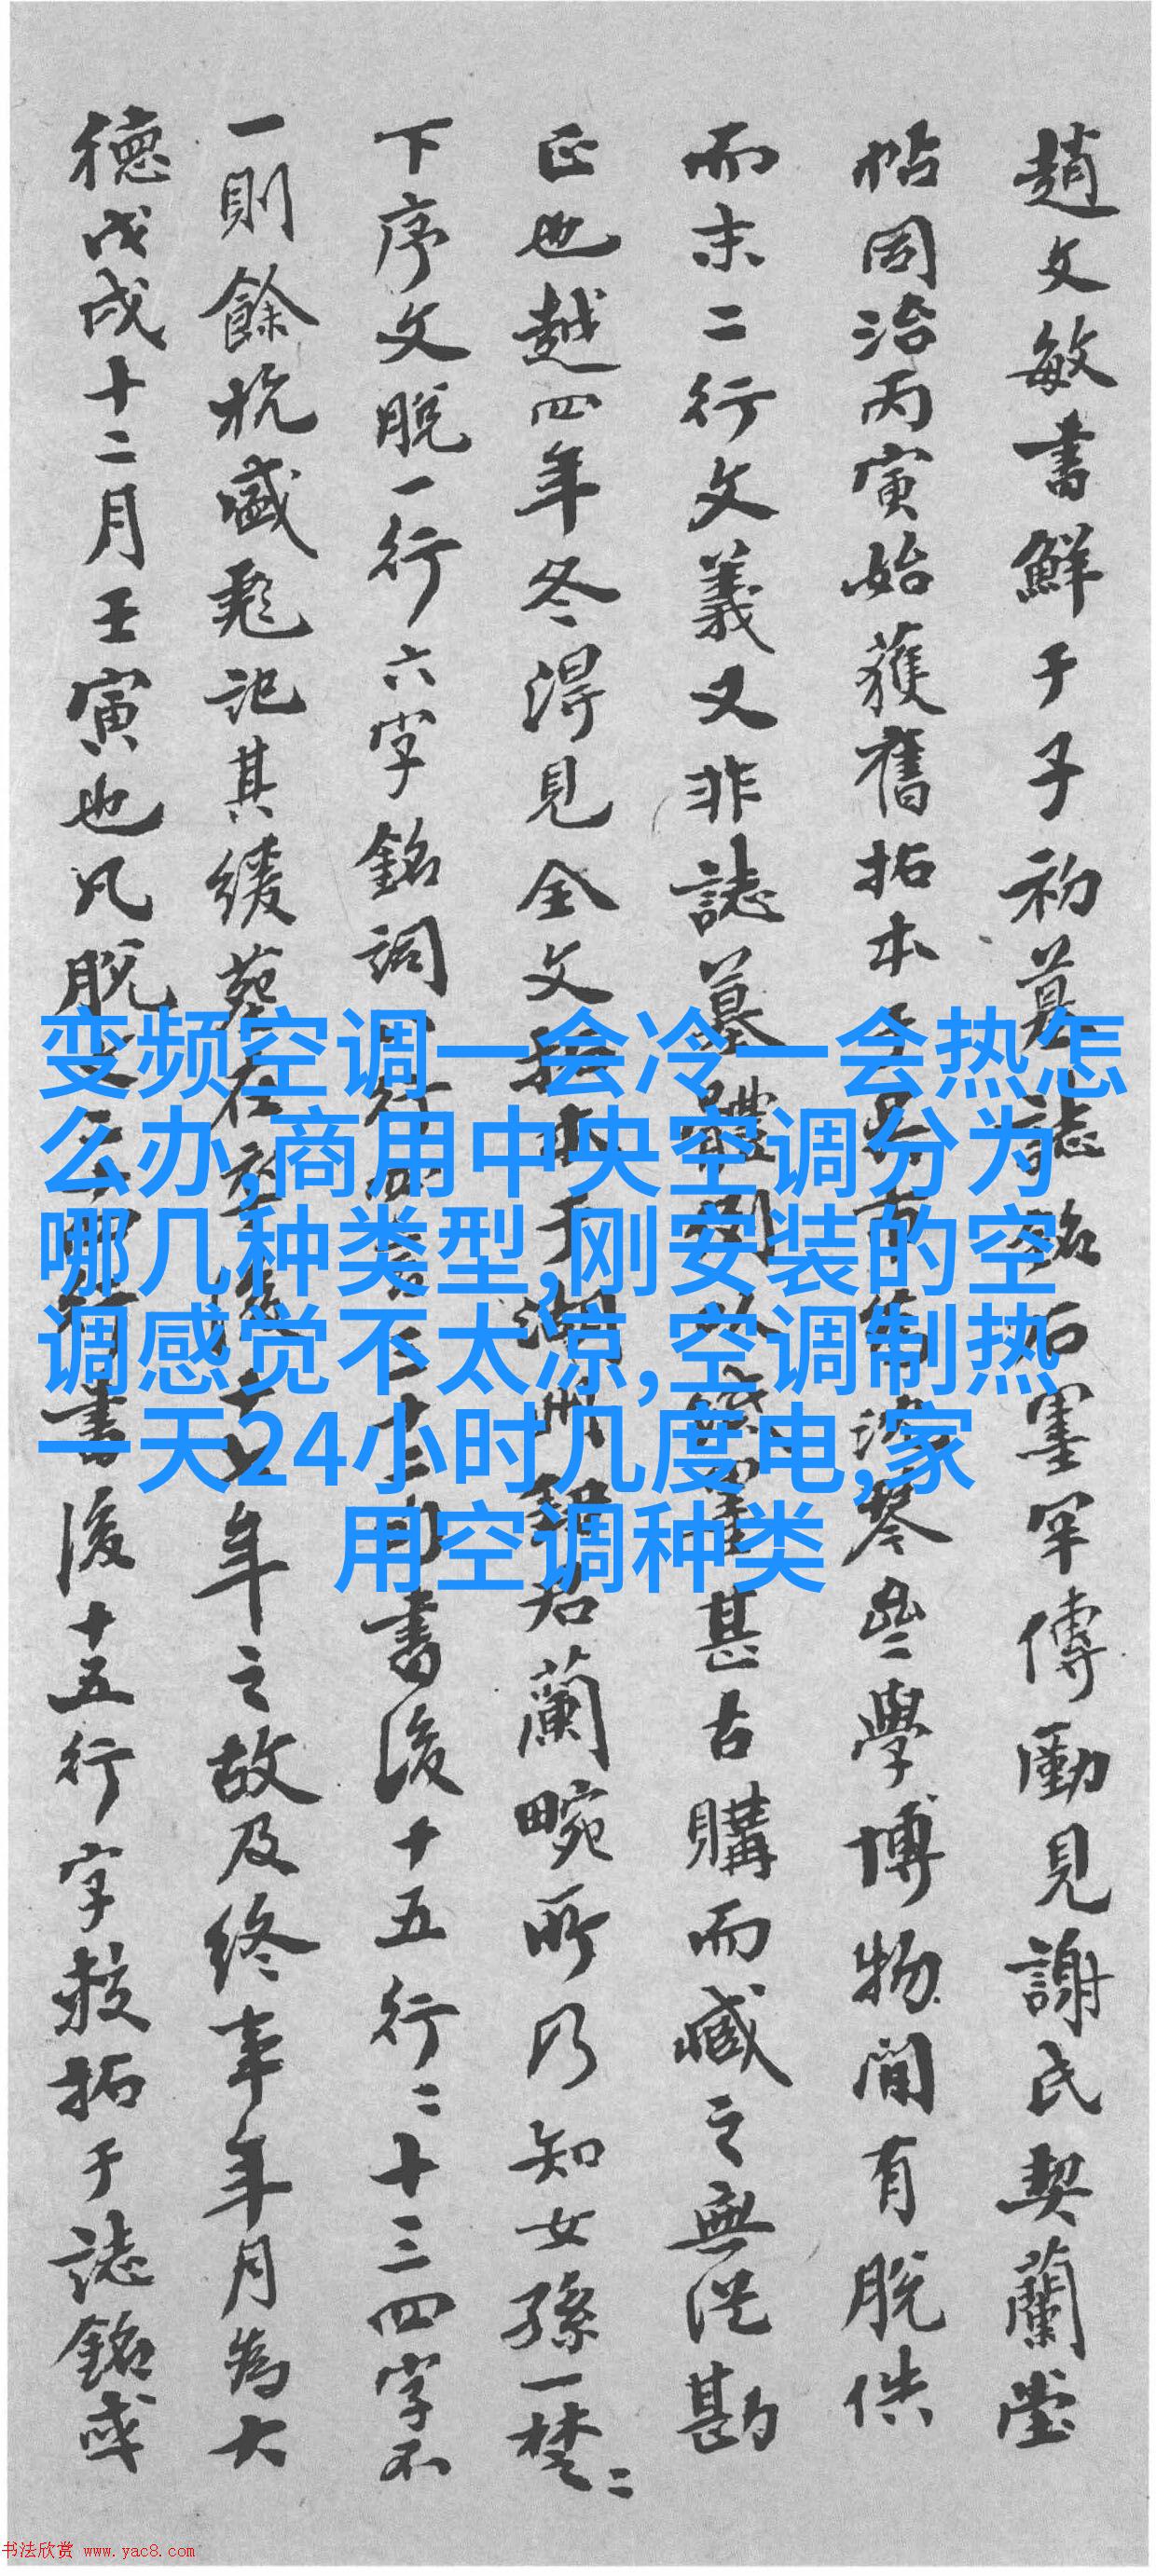 趙文敏書鮮于子初墓誌銘石墨罕傳勵見謝氏契蘭堂
帖同治丙寅始獲舊拓本
而末二行文義又非誌墓體例
正也越四年冬得見全文拓本于湖州
下序文脫一行六字銘詞
一則餘杭盛彪記其緩葬在
德戊戌十二月壬寅也凡脫
变频空调一会冷一会热怎
么办,商用中央空调分为
哪几种类型,刚安装的空
调感觉不太凉,空调制热
一天24小时几度电,家
用空调种类
琴壆學博物間有脫佚
甚古購而藏之無從勘
蘭畹所乃知女孫一楚二
書後十五行二十三四字不
年之故及終事年月為大
書後十五行字數拓于誌銘或
书法欣赏 www.yac8.com